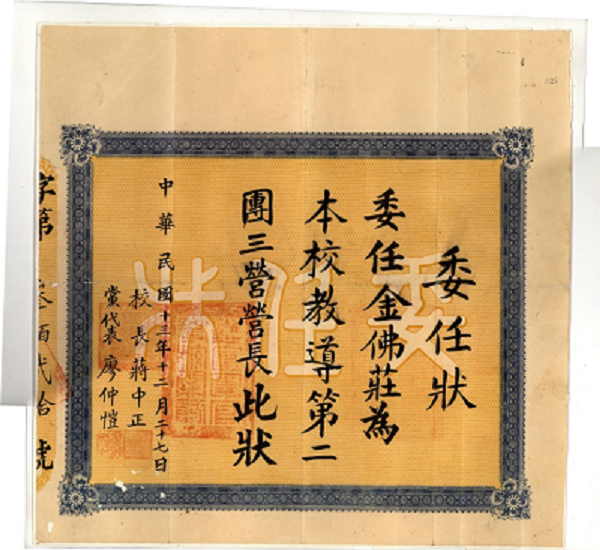 委任狀
委任金佛莊為
本校教導第二
團三營營長此狀
中華民國十三年十二月二十七日
校長蔣中正
黨代表廖仲愷
字第叁佰弍拾號
委任狀